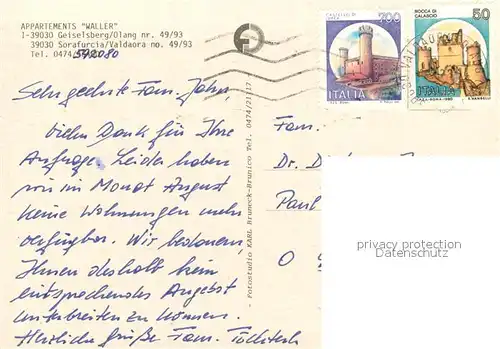 APPARTEMENTS "WALLER"
I-39030 Geiselsberg/Olang nr. 49/93
39030 Sorafurcia/Valdaora no. 49/93
Tel. 0474/592080
Sehr geehrte Fam. Jahn,
vielen Dank für Ihre
Anfrage. Leider haben
wir im Monat August
keine Wohnungen mehr
verfügbar. Wir bedauern,
Ihnen deshalb kein
entsprechendes Angebot
unterbreiten zu können.
Herzliche Grüße Fam.
- Fotostudio KARL Bruneck-Brunico Tel. 0474/21117
700
ITALIA
ROCCA DI
CALASCIO
50
ITALIA
Fam.
Dr.
Paul
O
privacy protection
Datenschutz